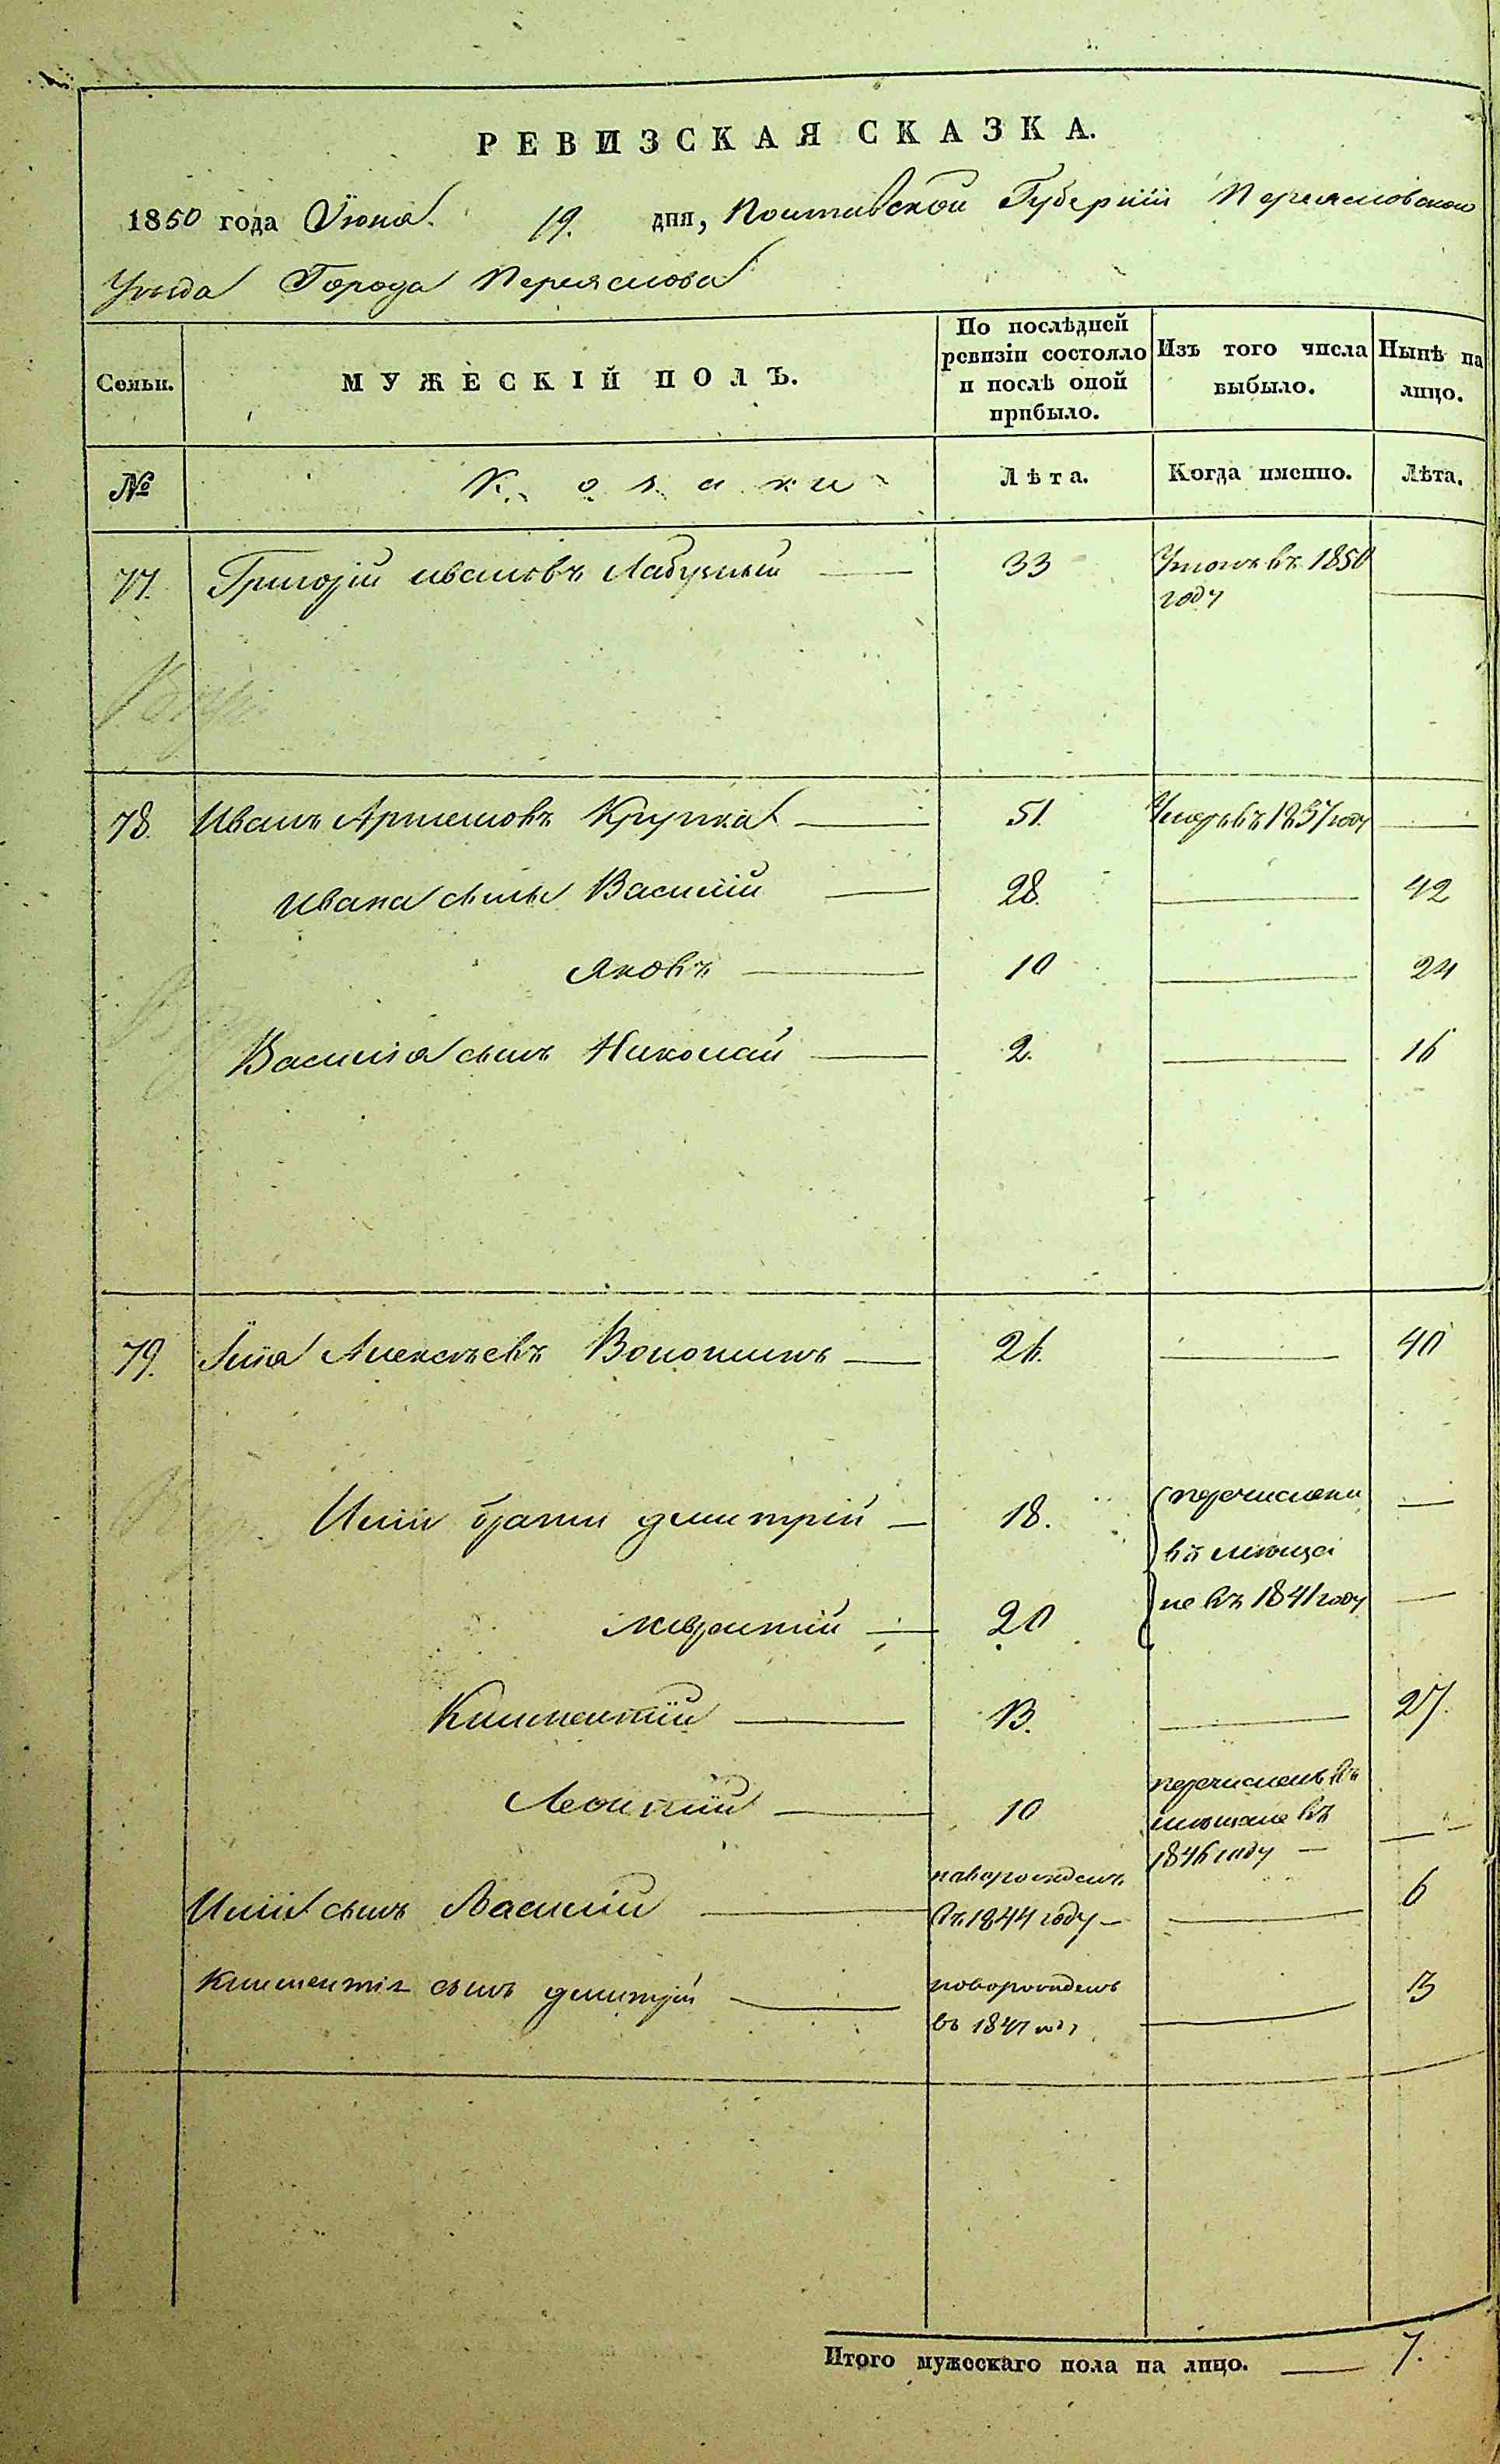 РЕВИЗСКАЯ СКАЗКА.
1850 года Іюня 19. дня, Полтавской Губерніи Переясловскаго
Уѣзда Города Переяслова
Семьи.
МУЖЕСКІЙ ПОЛЪ.
По послѣдней ревизіи состояло и послѣ оной прибыло.
Изъ того числа выбыло.
Нынѣ на лицо.
№
Козаки
Лѣта.
Когда именно.
Лѣта.
77. Григорій Ивановъ 33 въ 1850
году
78. Иванъ Артемовъ Крупка 51. Умеръ въ 1837 году
Ивана сынъ Василій 28. 42
Яковъ 10 24
Василія сынъ Николай 2. 16
79. Илія Алексѣевъ Волошинъ 26. 40
Иліи братья Дмитрій 18. перечислены
въ мѣщан
не въ 1841 году
20
Климентій 13. 27.
Леонтій 10 перечисленъ въ
мѣщане въ
1846 году
Иліи сынъ Василій новорожденъ
въ 1844 году 6
Климентія сынъ Дмитрій новорожденъ
въ 1847 году 3
Итого мужескаго пола на лицо. 7.